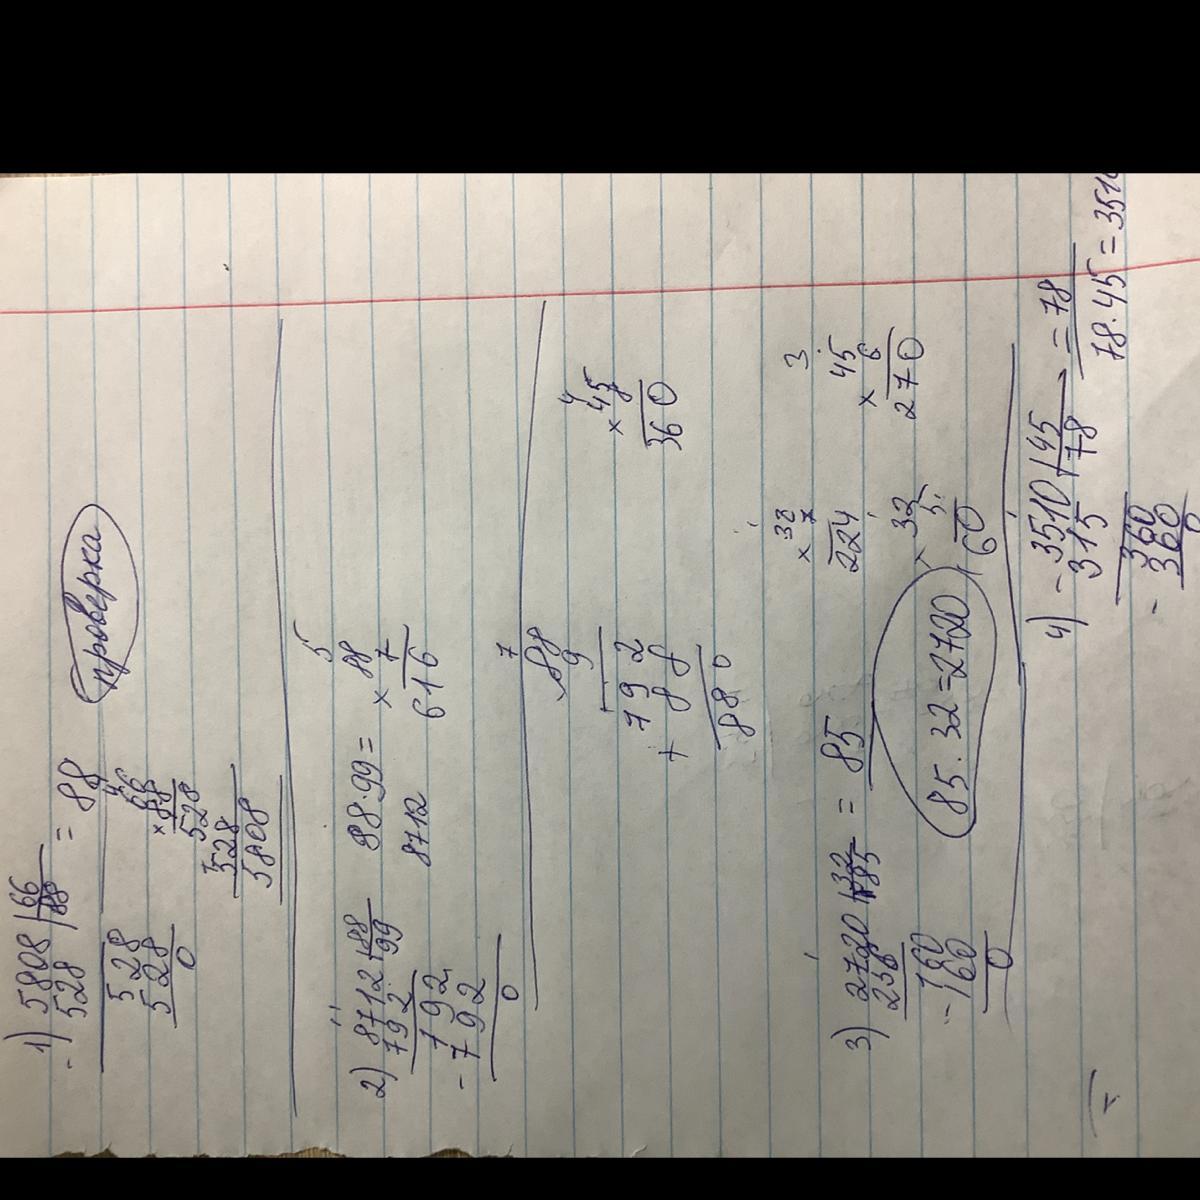 проверка
1) 5808 | 66 = 88
- 528 88
528
528
0
4
66
× 88
528
528
5808
2) 8712 | 88
792 99
792
- 792
0
88·99 =
8712
5
88
× 7
616
7
88
9
792
+ 88
880
4
45
× 8
360
3) 2720 | 32 = 85
256 85
160
- 160
0
85·32=2720
× 32
7
224
× 32
5
160
3
45
× 6
270
4) - 3510 | 45 = 78
315 78
360
- 360
0
78·45=3510